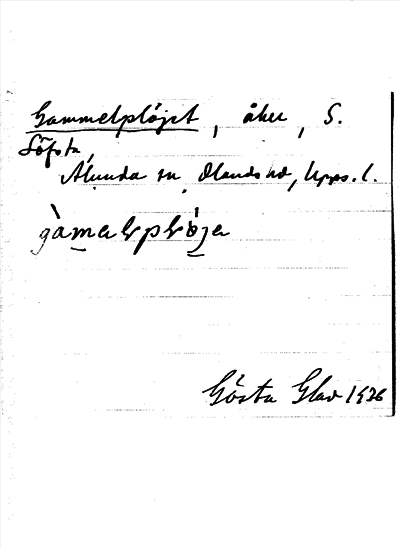 Gammelplöjet, åker, S.
Söfsta,
Alunda sn, Olands hd, Upps. l.
Gösta Glad 1926